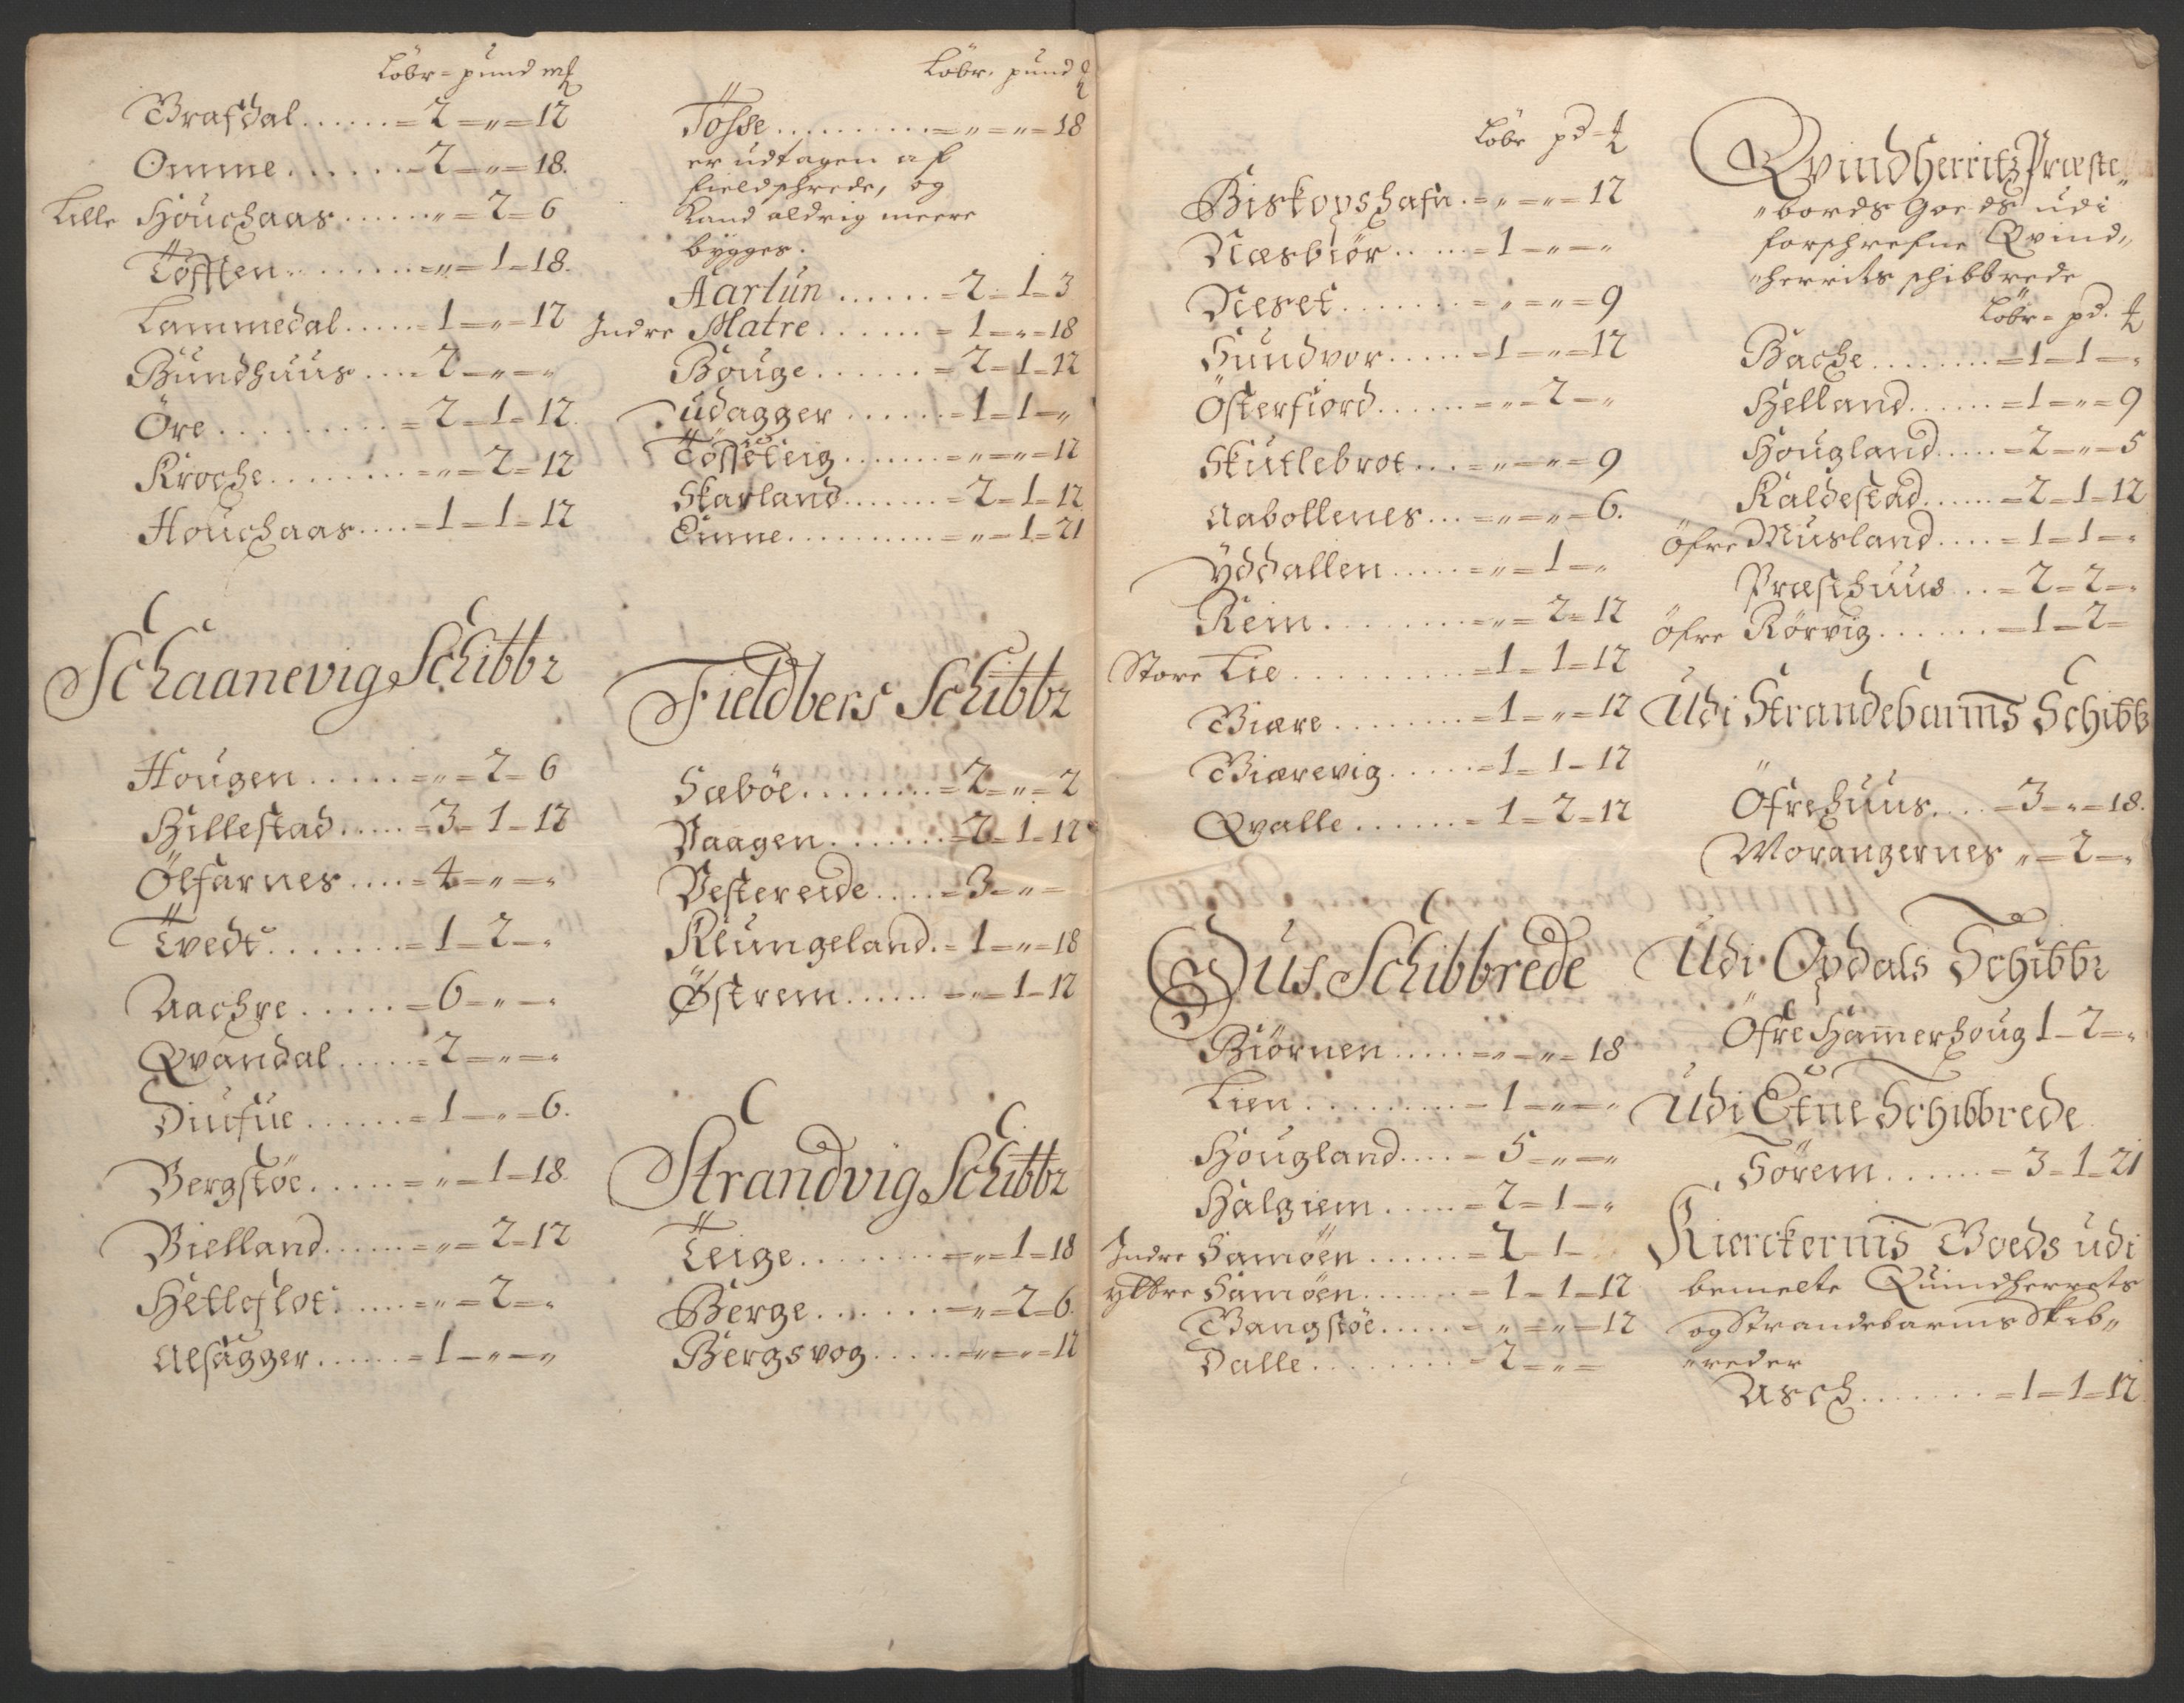 Löbr = pund mſ
Brafdal ...... = 2 = „ = 12
Omme ...... = 2 = „ = 18.
Lille Houchaas ...... „ = 2 = 6
Töfften ...... = „ = 1 = 18.
Lammedal ..... = 1 = „ = 12
Bundhuus .... = 2 = „ = „
Öre ......... = 2 = 1 = 12.
Kroche ....... = „ = 2 = 12
Houchaas .... = 1 = 1 = 12
Schaanevig Schibbr
Hougen ..... = „ = 2 = 6
Hillestad ..... = 3 = 1 = 12
Ölfarnes .... = 4 = „ = „
Tvedt ....... = 1 = 2 = „
Aachre ..... = 6 = „ = „
Qvandal ..... = 2 = „ = „
Diufue ...... = 1 = „ = 6.
Bergstöe ..... = „ = 1 = 18.
Bielland ...... = „ = 2 = 12
Hetleflot ..... = „ = 2 = „
Alsagger ...... = 1 = „ = „
Löbr. pund
Tösse .......... = „ = „ = 18
er udtagen af
fieldschrede, og
kand aldrig meere
bygges.
Aarlun ...... = 2 = 1 = 3
Indre Matre ....... = 1 = „ = 18
Bouge ....... = 2 = 1 = 12
udagger ...... = 1 = 1 = „
Tösseteig ....... = „ = „ = 12
Skarland ....... = 2 = 1 = 12
Emne .......... = „ = 1 = 21
Fieldbers Schibbr
Sæböe ........ = 2 = „ = 2
Vaagen ....... = 2 = 1 = 12
Vestereide .... = 3 = „ =
Klungeland. = 1 = „ = 18
Östrem ...... = „ = 1 = 12
Strandvig Schibbr
Teige ........ = „ = 1 = 18
Berge ....... = „ = 2 = 6.
Bergsvog ..... = „ = „ = 12
Löbr pd =
Biskopshafn . = „ = „ = 12
Næsbiör ..... = 1 = „ = „
Neset ....... = „ = „ = 9
Sundvor ..... = 1 = „ = 12
Österfiord ...... = „ = 2 = „
Skutlebrot ... = „ = „ = 9
Aabollenes ... = „ = „ = 6.
yddallen ..... = „ = 1 = „
Rem ........ = „ = 2 = 12
Store Lie .......... = 1 = 1 = 12
Biære ........ = 1 = „ = 12
Biærevig ..... = 1 = 1 = 12
Qvalle ....... = 1 = 2 = 12
Hus Schibbrede
Biörnen ..... = „ = „ = 18
Lien ......... = 1 = „ = „
Hougland .... = 5 = „ = „
Halgiem ..... = 2 = 1 = „
Indre Samöen ...... = 2 = 1 =
yttre Samöen ....... = 1 = 1 = 12
Vangstöe ..... = „ = „ = 12
Dalle ........ = 2 = „ =
Qvindherritz Præste„
„bords Goeds udi
forschrefne Qvind„
„herrits schibbrede
Löbr = pd.
Bache ........ = 1 = 1 = „
Helland ...... = 1 = „ = 9
Hougland ..... = 2 = „ = 5
Kaldestad ...... = 2 = 1 = 12
Öfre Musland .... = 1 = 1 = „
Præsthuus .. = 2 = 2 = „
Öfre Rörvig ...... = 1 = 2 =
Udi Strandebarms Schibb
Öfrehuus .... = 3 = „ = 18.
Morangernes „ = 2 = „
Udi Opdals Schibbr
Öfre Hamerhoug 1 = 2 = „
Udi Etne Schibbrede
Sörem ...... = 3 = 1 = 21
Kierckernis Goeds udi
bemelte Quindherrets
og Strandebarms Skib„
„reder
Asch ....... = 1 = 1 = 12